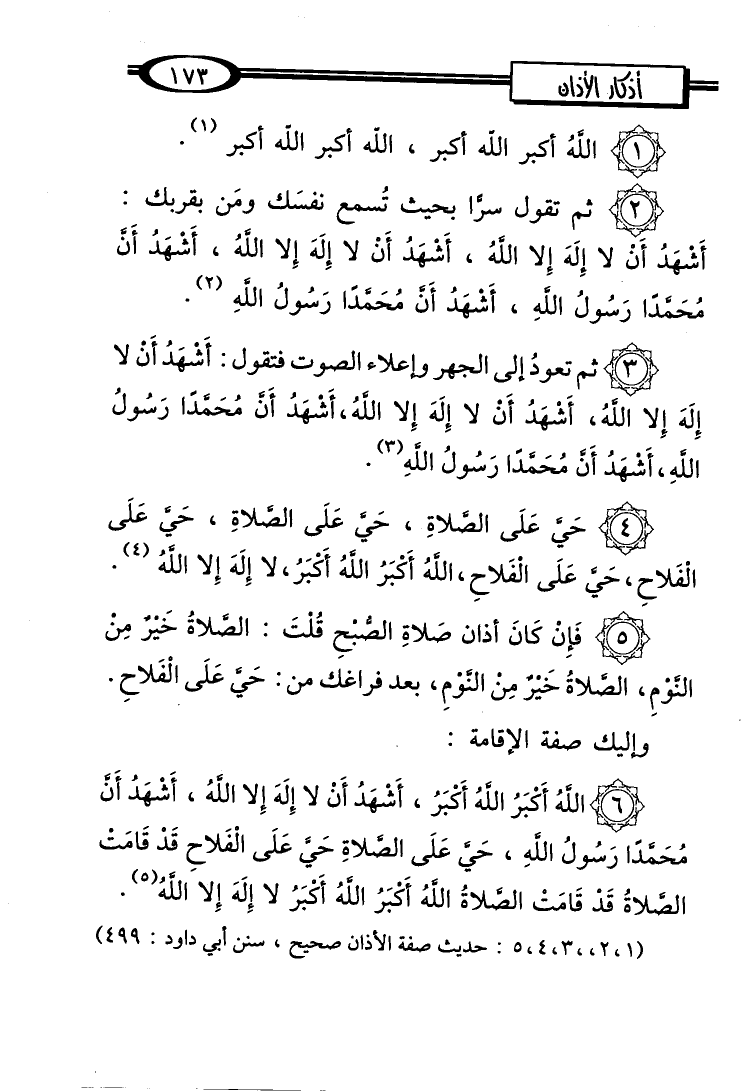 أذكار الأذان
١٧٣
١ اللَّهُ أكبر اللَّه أكبر ، اللَّه أكبر اللَّه أكبر (١) .
٢ ثم تقول سرًّا بحيث تُسمع نفسَك ومَن بقربك :
أَشْهَدُ أَنْ لا إِلَهَ إِلا اللَّهُ ، أَشْهَدُ أَنْ لا إِلَهَ إِلا اللَّهُ ، أَشْهَدُ أَنَّ
مُحَمَّدًا رَسُولُ اللَّهِ ، أَشْهَدُ أَنَّ مُحَمَّدًا رَسُولُ اللَّهِ (٢) .
٣ ثم تعودُ إلى الجهر وإعلاء الصوت فتقول : أَشْهَدُ أَنْ لا
إِلَهَ إِلا اللَّهُ، أَشْهَدُ أَنْ لا إِلَهَ إِلا اللَّهُ،أَشْهَدُ أَنَّ مُحَمَّدًا رَسُولُ
اللَّهِ،أَشْهَدُ أَنَّ مُحَمَّدًا رَسُولُ اللَّهِ(٣) .
٤ حَيَّ عَلَى الصَّلاةِ ، حَيَّ عَلَى الصَّلاةِ ، حَيَّ عَلَى
الْفَلاحِ،حَيَّ عَلَى الْفَلاحِ،اللَّهُ أَكْبَرُ اللَّهُ أَكْبَرُ،لا إِلَهَ إِلا اللَّهُ (٤) .
٥ فَإِنْ كَانَ أذان صَلاةِ الصُّبْحِ قُلْتَ : الصَّلاةُ خَيْرٌ مِنَ
النَّوْمِ، الصَّلاةُ خَيْرٌ مِنْ النَّوْمِ، بعد فراغك من : حَيَّ عَلَى الْفَلاحِ .
وإليك صفة الإقامة :
٦ اللَّهُ أَكْبَرُ اللَّهُ أَكْبَرُ ، أَشْهَدُ أَنْ لا إِلَهَ إِلا اللَّهُ ، أَشْهَدُ أَنَّ
مُحَمَّدًا رَسُولُ اللَّهِ ، حَيَّ عَلَى الصَّلاةِ حَيَّ عَلَى الْفَلاحِ قَدْ قَامَتْ
الصَّلاةُ قَدْ قَامَتْ الصَّلاةُ اللَّهُ أَكْبَرُ اللَّهُ أَكْبَرُ لا إِلَهَ إِلا اللَّهُ(٥) .
(٥،٤،٣،،٢،١ : حديث صفة الأذان صحيح ، سنن أبي داود : ٤٩٩)